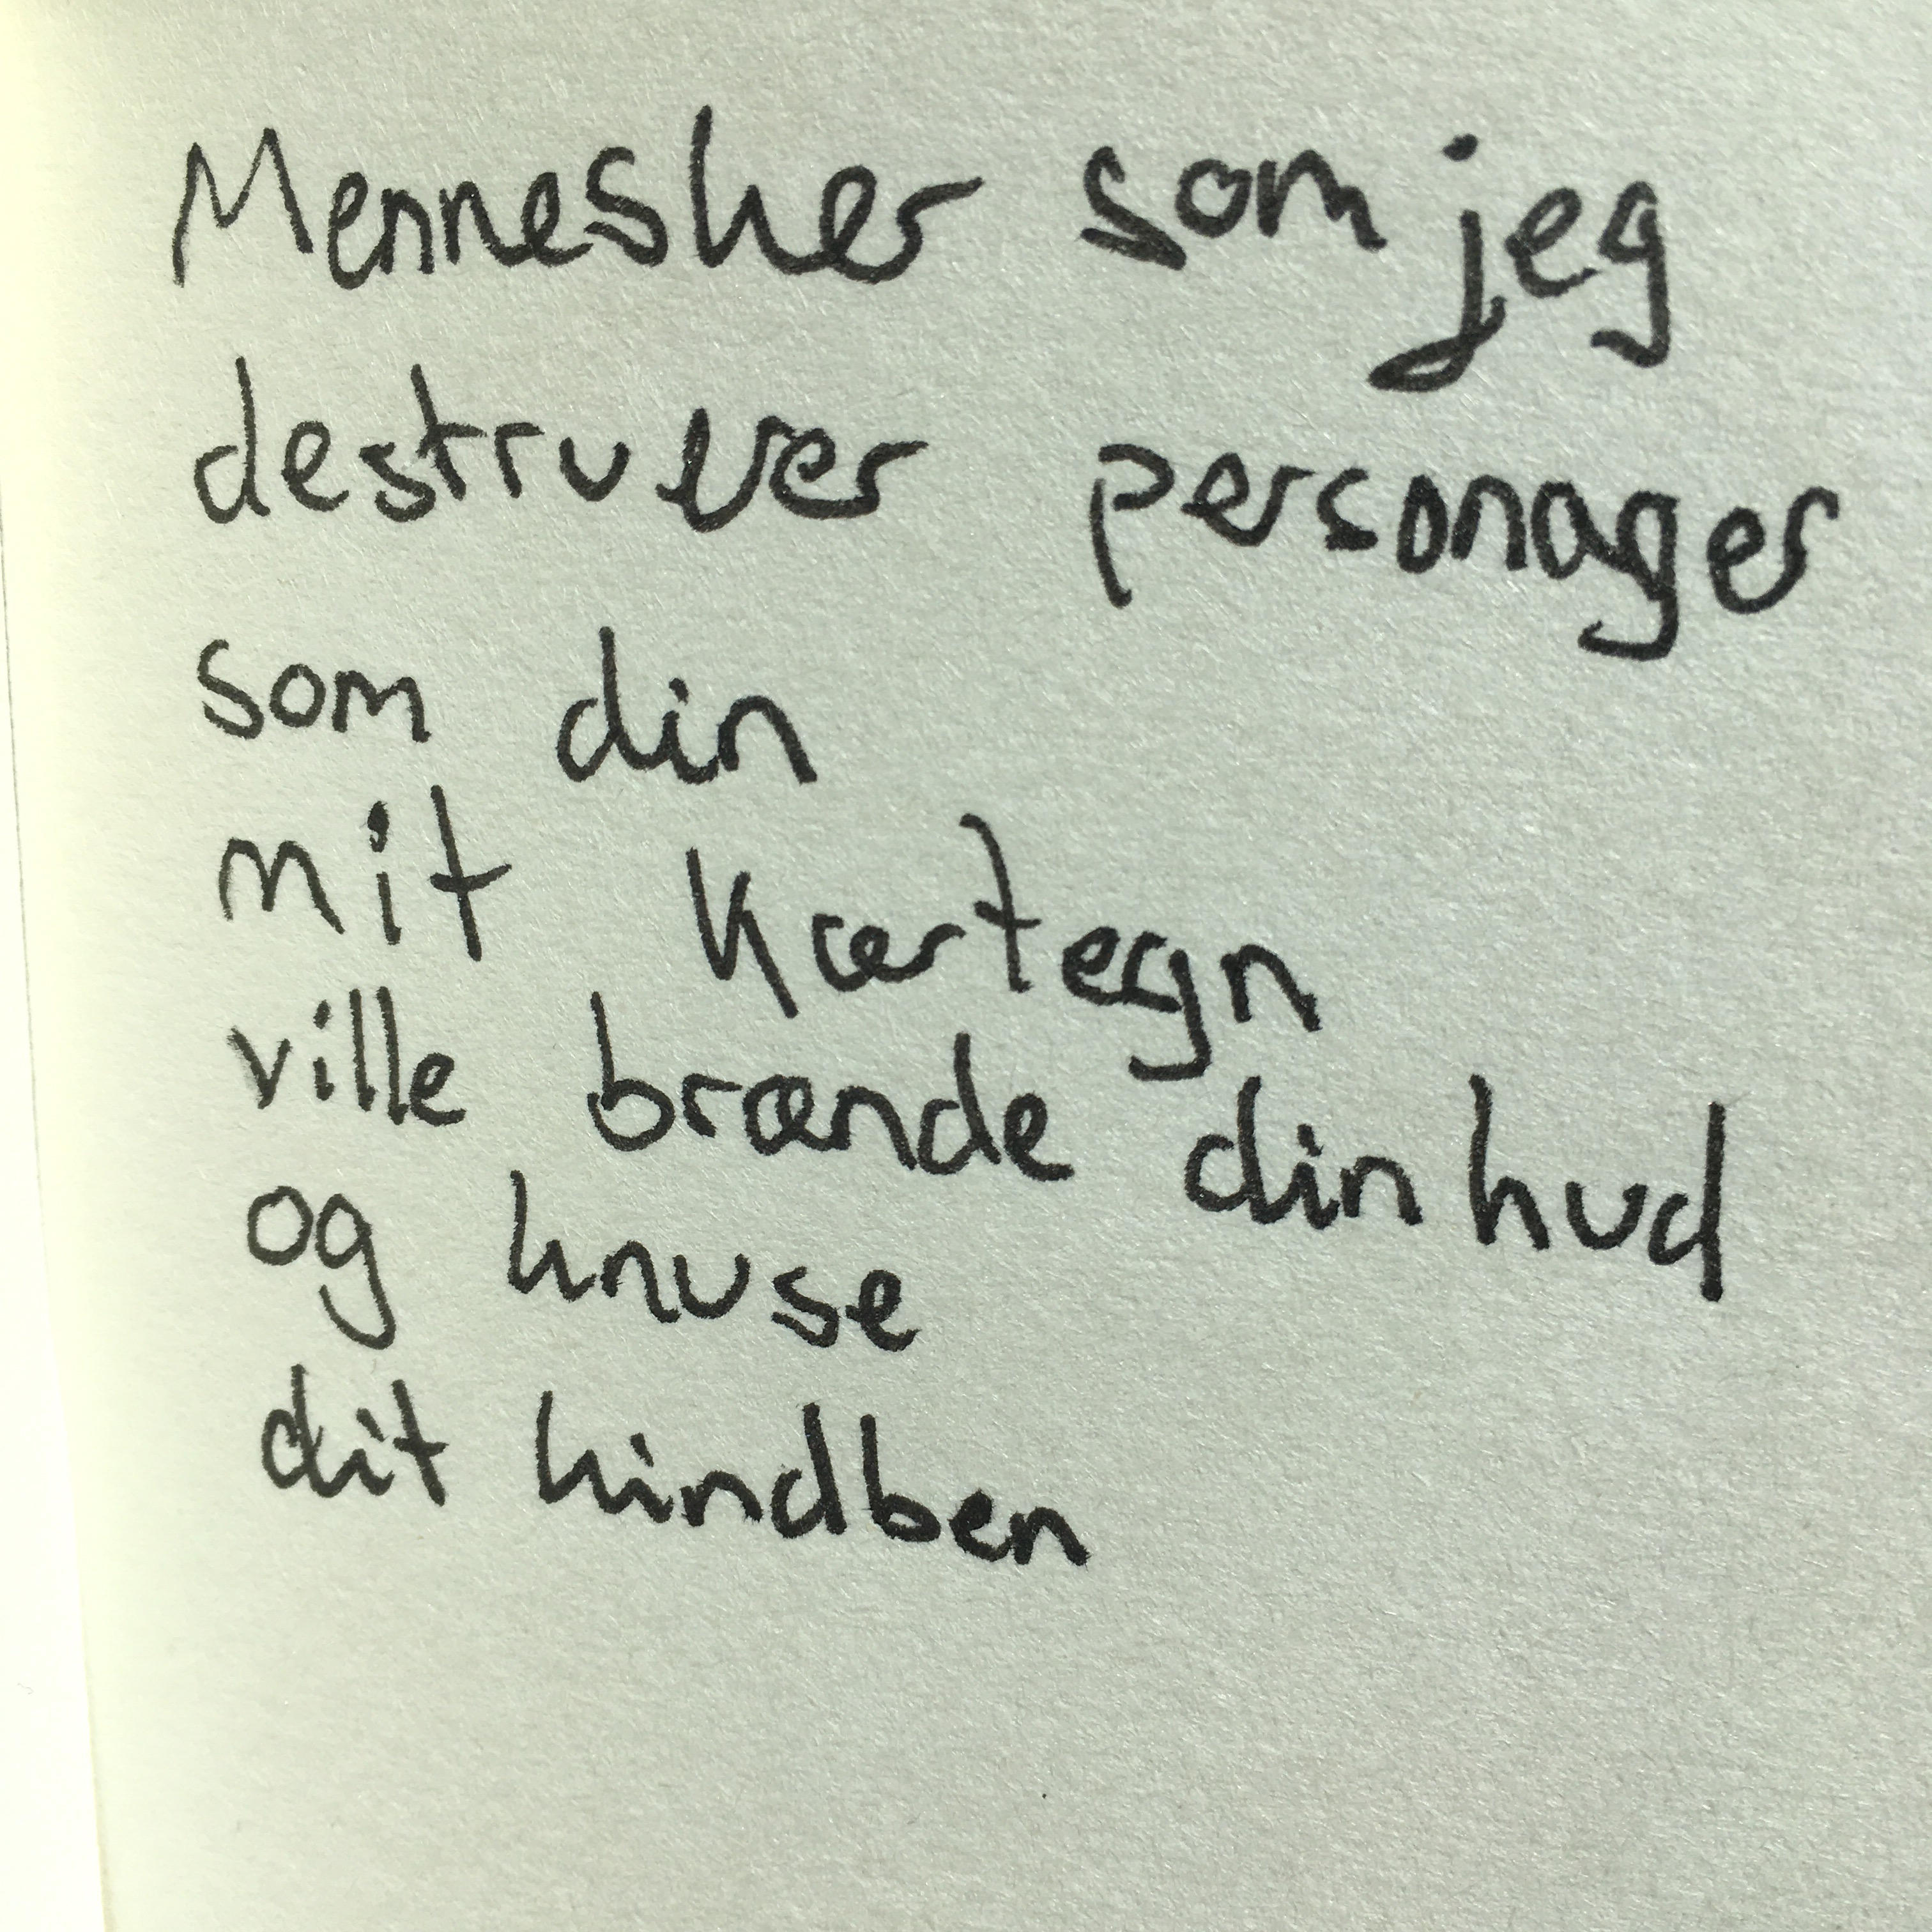 Mennesker som jeg
destruerer personager
som din
mit kærtegn
ville brænde din hud
og knuse
dit kindben